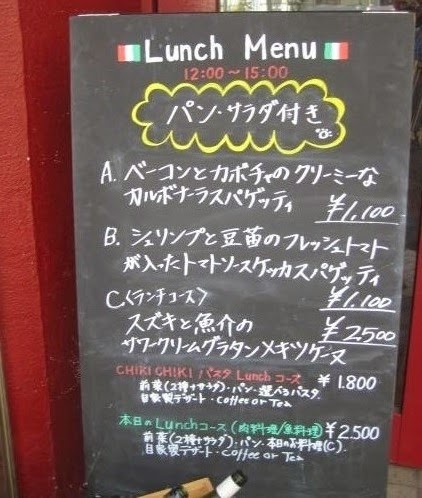 Lunch Menu
12:00〜15:00
パン・サラダ付き
A. ベーコンとカボチャのクリーミーな
カルボナーラスパゲッティ ¥1,100
B. シュリンプと豆苗のフレッシュトマト
が入ったトマトソースケッカスパゲッティ
¥1,100
C〈ランチコース〉
スズキと魚介の ¥2500
サワークリームグラタンメキツゲーヌ
CHIKI CHIKI パスタ Lunch コース ¥1.800
前菜(2種+サラダ)・パン・選べるパスタ
自家製デザート・Coffee or Tea
本日のLunchコース(肉料理/魚料理) ¥2.500
前菜(2種+サラダ)・パン・本日のお料理(C)
自家製デザート・Coffee or Tea